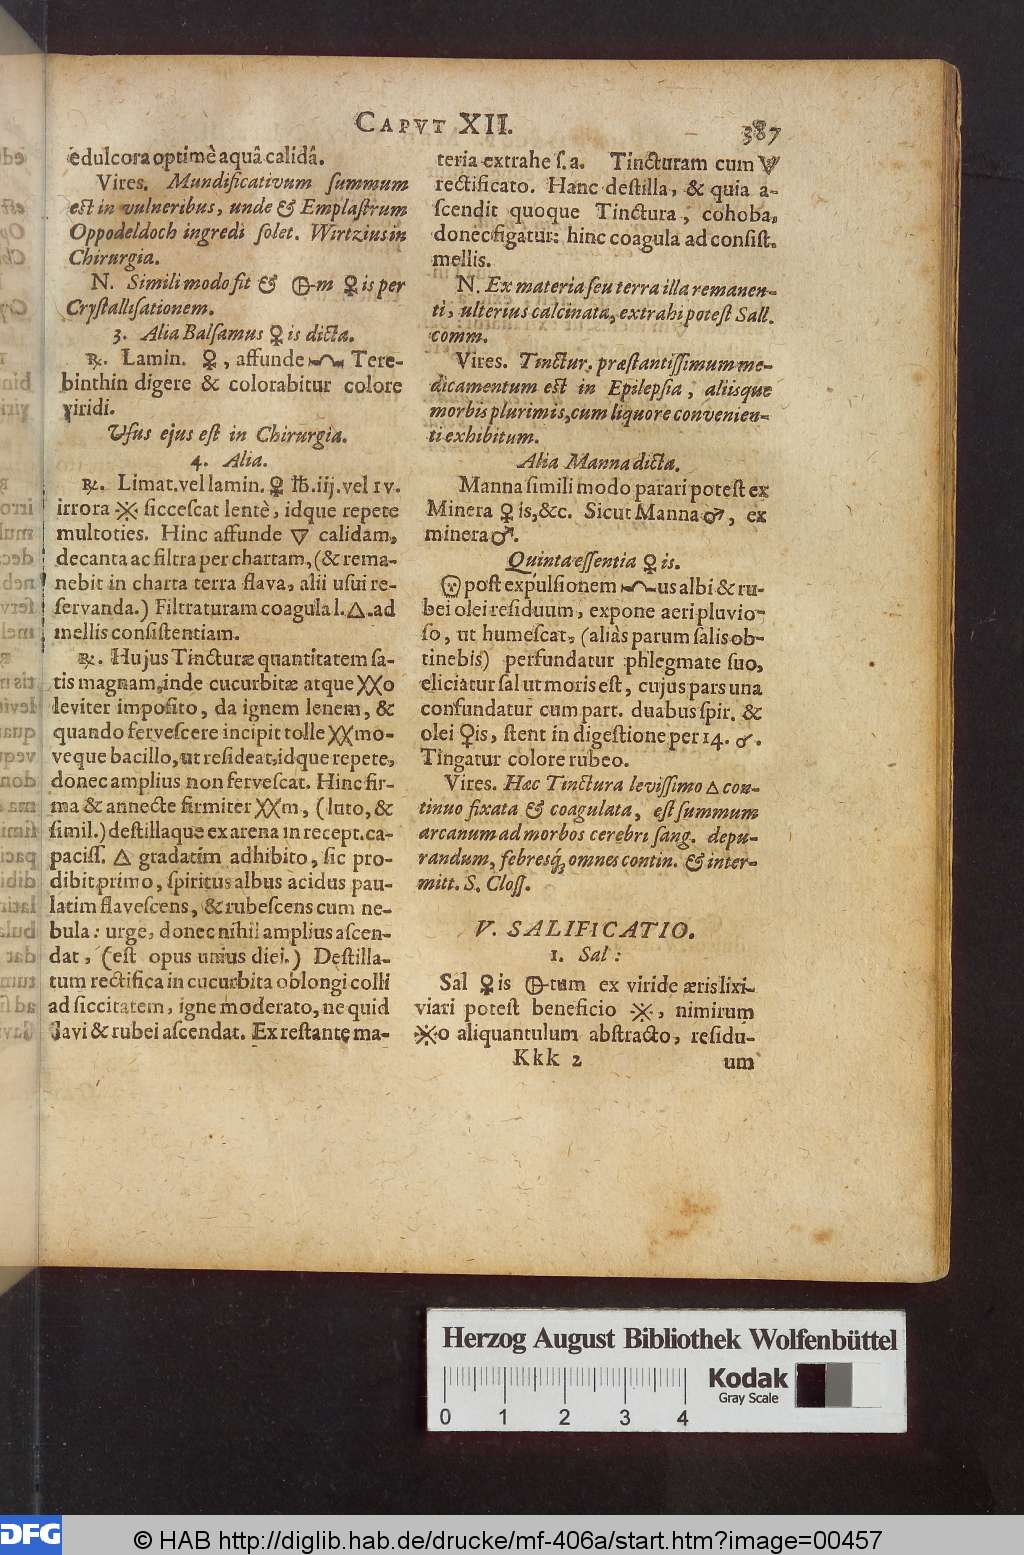 CAPVT XII.
387
edulcora optimè aquâ calidâ.
Vires. Mundificativum ſummum
est in vulneribus, unde & Emplaſtrum
Oppodeldoch ingredi ſolet. Wirtzius in
Chirurgia.
N. Simili modo fit & 🜨m ♀is per
Cryſtalliſationem.
3. Alia Balſamus ♀is dicta.
℞. Lamin. ♀, affunde Tere-
binthin digere & colorabitur colore
viridi.
Uſus ejus eſt in Chirurgia.
4. Alia.
℞. Limat. vel lamin. ♀ ℔. iij. vel IV.
irrora ※ ſicceſcat lentè, idque repete
multoties. Hinc affunde 🜄 calidam,
decanta ac filtra per chartam, (& rema-
nebit in charta terra flava, alii uſui re-
ſervanda.) Filtraturam coagula l. 🜂. ad
mellis conſiſtentiam.
℞. Hujus Tincturæ quantitatem ſa-
tis magnam, inde cucurbitæ atque XXo
leviter impoſito, da ignem lenem, &
quando ferveſcere incipit tolle XX mo-
veque bacillo, ut reſideat, idque repete,
donec amplius non ferveſcat. Hinc fir-
ma & annecte firmiter XXm, (luto, &
ſimil.) deſtillaque ex arena in recept. ca-
paciſſ. 🜂 gradatim adhibito, ſic pro-
dibit primo, ſpiritus albus acidus pau-
latim flaveſcens, & rubeſcens cum ne-
bula: urge, donec nihil amplius aſcen-
dat, (eſt opus unius diei.) Deſtilla-
tum rectifica in cucurbita oblongi colli
ad ſiccitatem, igne moderato, ne quid
flavi & rubei aſcendat. Ex reſtante ma-
teria extrahe ſ. a. Tincturam cum
rectificato. Hanc deſtilla, & quia a-
ſcendit quoque Tinctura, cohoba,
donec figatur: hinc coagula ad conſiſt.
mellis.
N. Ex materia ſeu terra illa remanen-
ti, ulterius calcinata, extrahi poteſt Sall.
comm.
Vires. Tinctur. præſtantiſſimum me-
dicamentum est in Epilepſia, aliisque
morbis plurimis, cum liquore convenien-
ti exhibitum.
Alia Manna dicta.
Manna ſimili modo parari poteſt ex
Minera ♀is, &c. Sicut Manna ♂, ex
minera ♂.
Quinta eſſentia ♀is.
💀 poſt expulſionem us albi & ru-
bei olei reſiduum, expone aeri pluvio-
ſo, ut humeſcat, (aliàs parum ſalis ob-
tinebis) perfundatur phlegmate ſuo,
eliciatur ſal ut moris eſt, cujus pars una
confundatur cum part. duabus ſpir. &
olei ♀is, ſtent in digeſtione per 14.
Tingatur colore rubeo.
Vires. Hæc Tinctura leviſſimo 🜂 con-
tinuo fixata & coagulata, eſt ſummum
arcanum ad morbos cerebri ſang. depu-
randum, febresq́; omnes contin. & inter-
mitt. S. Cloſſ.
V. SALIFICATIO.
1. Sal:
Sal ♀is 🜨tum ex viride æris lixi-
viari poteſt beneficio ※, nimirum
※o aliquantulum abſtracto, reſidu-
Kkk 2
um
Herzog August Bibliothek Wolfenbüttel
Kodak
Gray Scale
0 1 2 3 4
DFG
© HAB http://diglib.hab.de/drucke/mf-406a/start.htm?image=00457